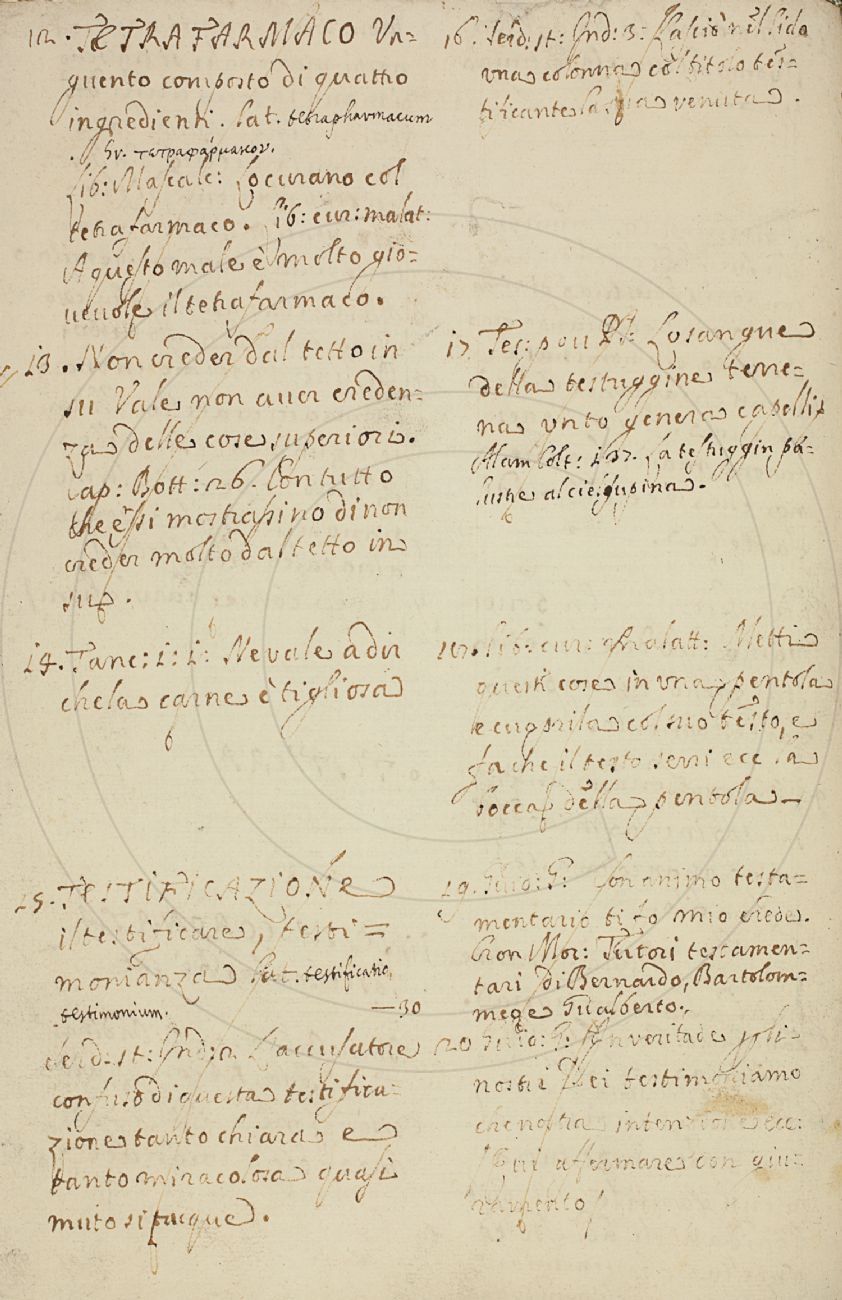 12. TETRAFARMACO Un=
guento composto di quattro
ingredienti. Lat. tetrapharmacum
. Gr. τετραφάρμακον.
Lib: Mascalc: Lo curano col
tetrafarmaco. Lib: cur: malat:
A questo male è molto gio=
vevole il tetrafarmaco.
13. Non creder dal tetto in
su Vale non aver creden=
za delle cose superiori.
cap: Bott: 26. Con tutto
che essi mostrassino di non
creder molto dal tetto in
su.
14. Tanc: 1: 1: Ne vale a dir
che la carne è tigliosa
15. TESTIFICAZIONE
il testificare, testi=
monianza Lat. testificatio,
testimonium. —30
Serd. st: Ind: 2 L'accusatore
confuso di questa testifica=
zione tanto chiara e
tanto miracolosa quasi
muto si tacque.
16. Serd. st: Ind: 3: Lasciò nel lido
una colonna col titolo tes=
tificante la sua venuta.
17 Tes: pou P: S: Lo sangue
della testuggine terre=
na unto genera capelli
Alam Colt: 127. La testuggin pa=
lustre al ciel supina.
18. lib: cur: Malatt: Metti
queste cose in una pentola
e cuoprila col suo testo, e
fa che il testo serri ecc la
bocca della pentola—
19. Guid: G: Con animo testa=
mentario ti fo mio erede.
Cron Mor: Tutori testamen=
tari di Bernardo, Bartolom=
meo e Gualberto.
20 Guid: G: In veritade gli
nostri Dei testimoniamo
che nostra intenzione ecc:
/ Qui affermare con giu=
ramento /